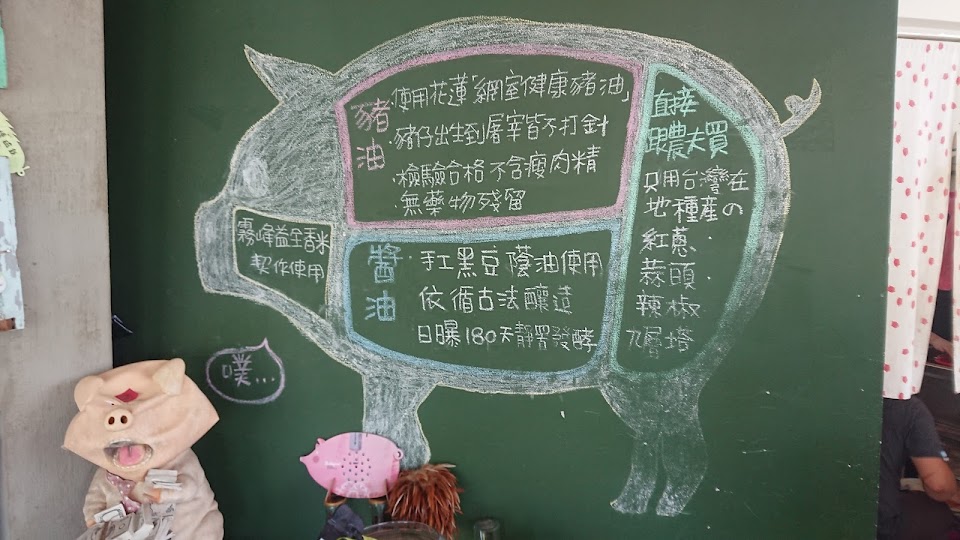 豬油
·使用花蓮「網室健康豬油」
·豬仔出生到屠宰皆不打針
·檢驗合格不含瘦肉精
·無藥物殘留
直接
跟農夫買
只用台灣在
地種產の
紅蔥·
蒜頭·
辣椒
九層塔
霧峰益全香米
契作使用
醬油
手工黑豆蔭油使用
依循古法釀造
日曝180天靜置發酵
噗...